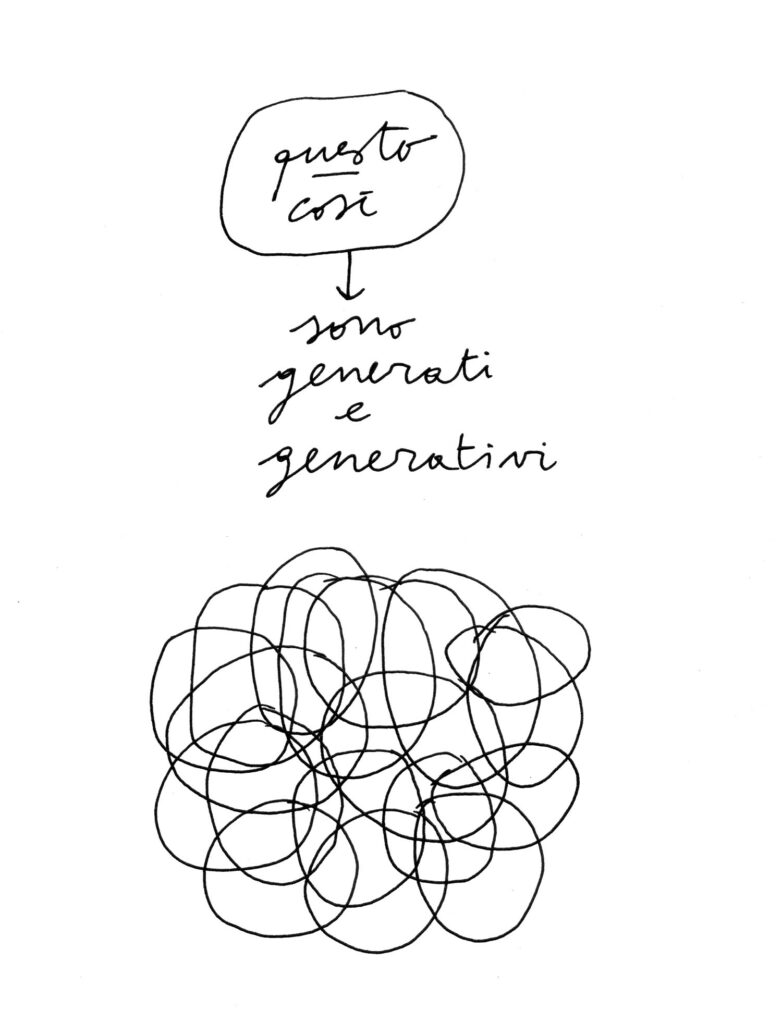 questo
così
sono
generati
e
generativi